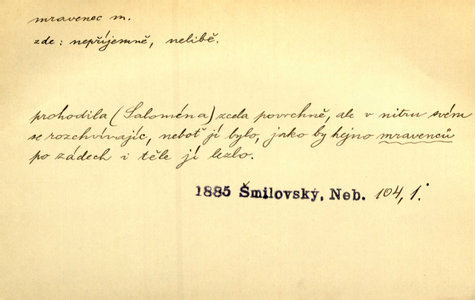 mravenec m.
zde: nepříjemně, nelibě.
prohodila (Saloména) zcela povrchně, ale v nitru svém
se rozchvívajíc, neboť jí bylo, jako by hejno mravenců
po zádech i těle jí lezlo.
1885 Šmilovský, Neb. 104,1.